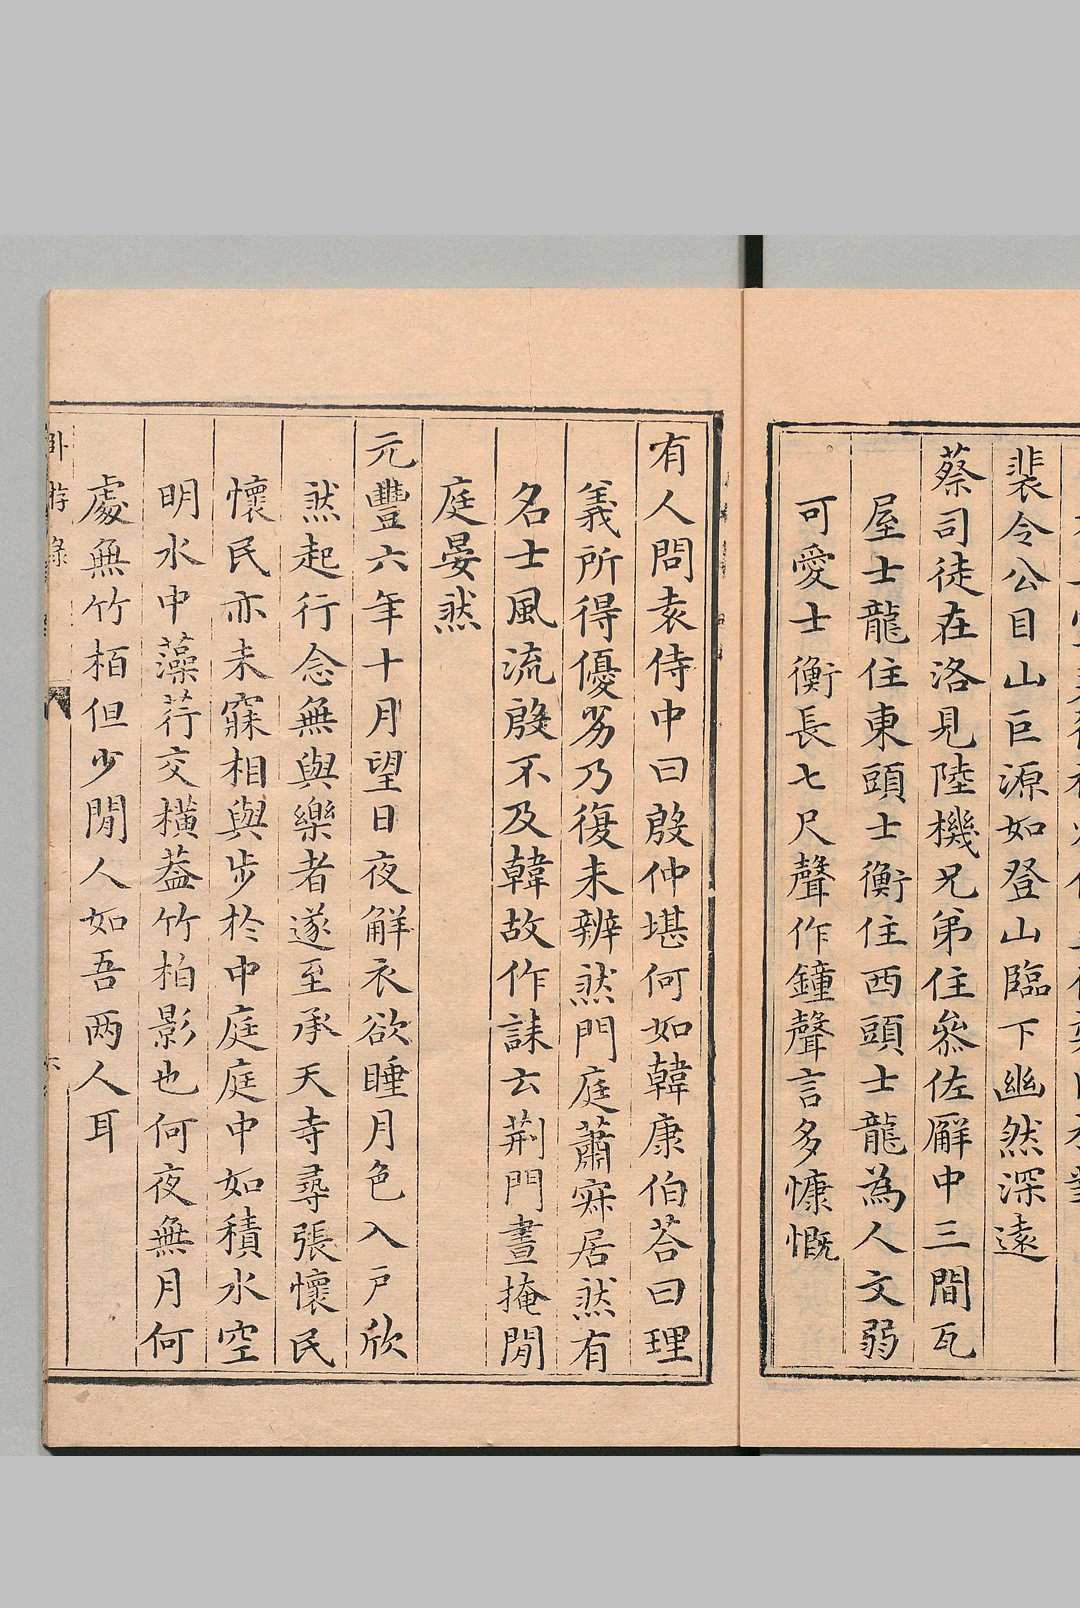 裴令公目山巨源如登山臨下幽然深遠
蔡司徒在洛見陸機兄弟住叅佐廨中三間瓦
屋士龍住東頭士衡住西頭士龍為人文弱
可愛士衡長七尺聲作鐘聲言多慷慨
有人問袁侍中曰殷仲堪何如韓康伯荅曰理
義所得優劣乃復未辨然門庭蕭寂居然有
名士風流殷不及韓故作誄云荆門晝掩閒
庭晏然
元豐六年十月望日夜解衣欲睡月色入戶欣
然起行念無與樂者遂至承天寺尋張懷民
懷民亦未寢相與步於中庭庭中如積水空
明水中藻荇交橫蓋竹柏影也何夜無月何
處無竹栢但少閒人如吾两人耳
卧游錄
六